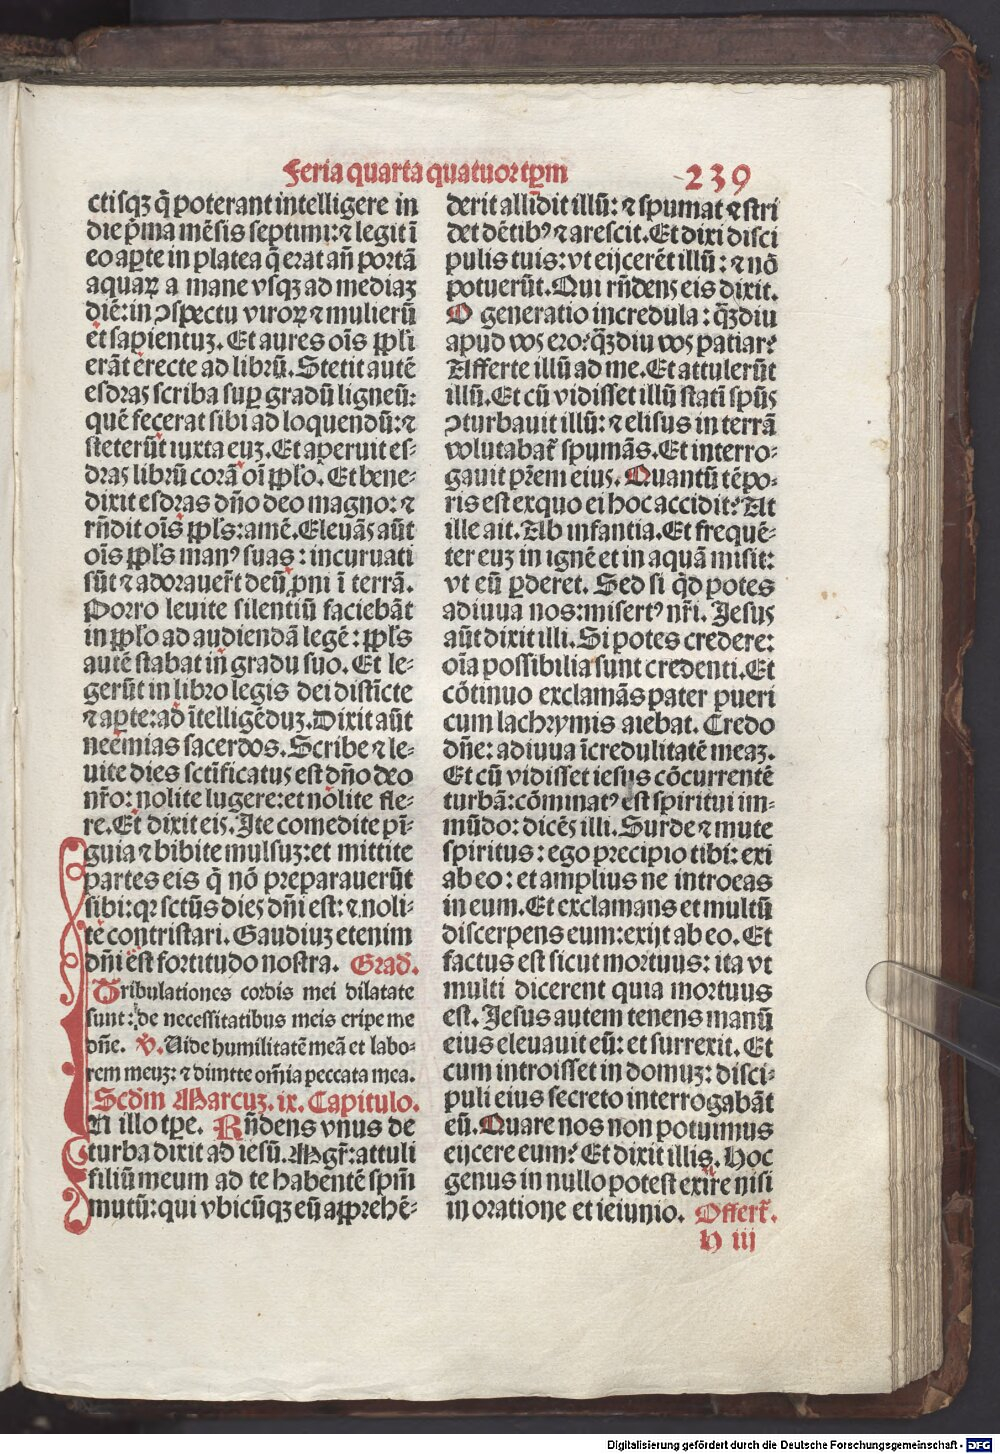 Feria quarta quatuor tp̄m
239
ctisqꝫ q̄ poterant intelligere in
die p̄ma mēsis septimi: ⁊ legit ī
eo aꝑte in platea q̄ erat an̄ portā
aquaꝝ a mane vsqꝫ ad mediaꝫ
diē: in ↄspectu viroꝝ ⁊ mulierū
et sapientuꝫ. Et aures oīs ppl̄i
erāt erecte ad librū. Stetit autē
esdras scriba suꝑ gradū ligneū:
quē fecerat sibi ad loquendū: ⁊
steterūt iuxta euꝫ. Et aperuit es-
dras librū corā oī ppl̄o. Et bene-
dixit esdras dn̄o deo magno: ⁊
rn̄dit oīs ppl̄s: amē. Eleuās aūt
oīs ppl̄s manꝰ suas: incuruati
sūt ⁊ adorauer̄t deū ꝓni ī terrā.
Porro leuite silentiū faciebāt
in ppl̄o ad audiendā legē: ppl̄s
autē stabat in gradu suo. Et le-
gerūt in libro legis dei distīcte
⁊ aꝑte: ad ītelligēduꝫ. Dixit aūt
neemias sacerdos. Scribe ⁊ le-
uite dies sctīficatus est dn̄o deo
nr̄o: nolite lugere: et nolite fle-
re. Et dixit eis. Ite comedite pī-
guia ⁊ bibite mulsuꝫ: et mittite
partes eis q̄ nō preparauerūt
sibi: qꝛ sctūs dies dn̄i est: ⁊ noli-
te contristari. Gaudiuꝫ etenim
dn̄i est fortitudo nostra. Grad̄.
Tribulationes cordis mei dilatate
sunt: de necessitatibus meis eripe me
dn̄e. V̄. Uide humilitatē meā et labo-
rem meuꝫ: ⁊ dimitte om̄ia peccata mea.
Scdm̄ Marcuꝫ. ix. Capitulo.
IN illo tp̄e. Rn̄dens vnus de
turba dixit ad iesū. Mgr̄: attuli
filiū meum ad te habentē spm̄
mutū: qui vbicūqꝫ eū apprehē-
derit allidit illū: ⁊ spumat ⁊ stri
det dētibꝰ ⁊ arescit. Et dixi disci
pulis tuis: vt eijcerēt illū: ⁊ nō
potuerūt. Qui rn̄dens eis dixit.
O generatio incredula: q̄ꝫdiu
apud vos ero? q̄ꝫdiu vos patiar?
Afferte illū ad me. Et attulerūt
illū. Et cū vidisset illū statī spūs
ↄturbauit illū: ⁊ elisus in terrā
volutabat̄ spumās. Et interro-
gauit pr̄em eius. Quantū tēpo-
ris est exquo ei hoc accidit? At
ille ait. Ab infantia. Et frequē-
ter euꝫ in ignē et in aquā misit:
vt eū ꝑderet. Sed si qd̄ potes
adiuua nos: misertꝰ nr̄i. Jesus
aūt dixit illi. Si potes credere:
oīa possibilia sunt credenti. Et
cōtinuo exclamās pater pueri
cum lachrymis aiebat. Credo
dn̄e: adiuua īcredulitatē meaꝫ.
Et cū vidisset iesus cōcurrentē
turbā: cōminatꝰ est spiritui im-
mūdo: dicēs illi. Surde ⁊ mute
spiritus: ego precipio tibi: exi
ab eo: et amplius ne introeas
in eum. Et exclamans et multū
discerpens eum: exijt ab eo. Et
factus est sicut mortuus: ita vt
multi dicerent quia mortuus
est. Jesus autem tenens manū
eius eleuauit eū: et surrexit. Et
cum introisset in domuꝫ: disci-
puli eius secreto interrogabāt
eū. Quare nos non potuimus
eijcere eum? Et dixit illis. Hoc
genus in nullo potest exire nisi
in oratione et ieiunio. Offert̄.
h iij
Digitalisierung gefördert durch die Deutsche Forschungsgemeinschaft - DFG